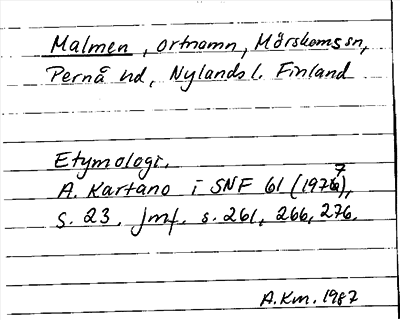 Malmen, ortnamn, Mörskoms sn,
Pernå hd, Nylands l. Finland
Etymologi.
A. Kartano i SNF 61 (1977),
s. 23. Jmf. s. 261, 266, 276.
A.Km. 1987